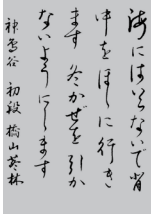 海にはいらないで背
中をほしに行き
ます 冬かぜを引か
ないようにします
神香谷 初段 橋山蒼林